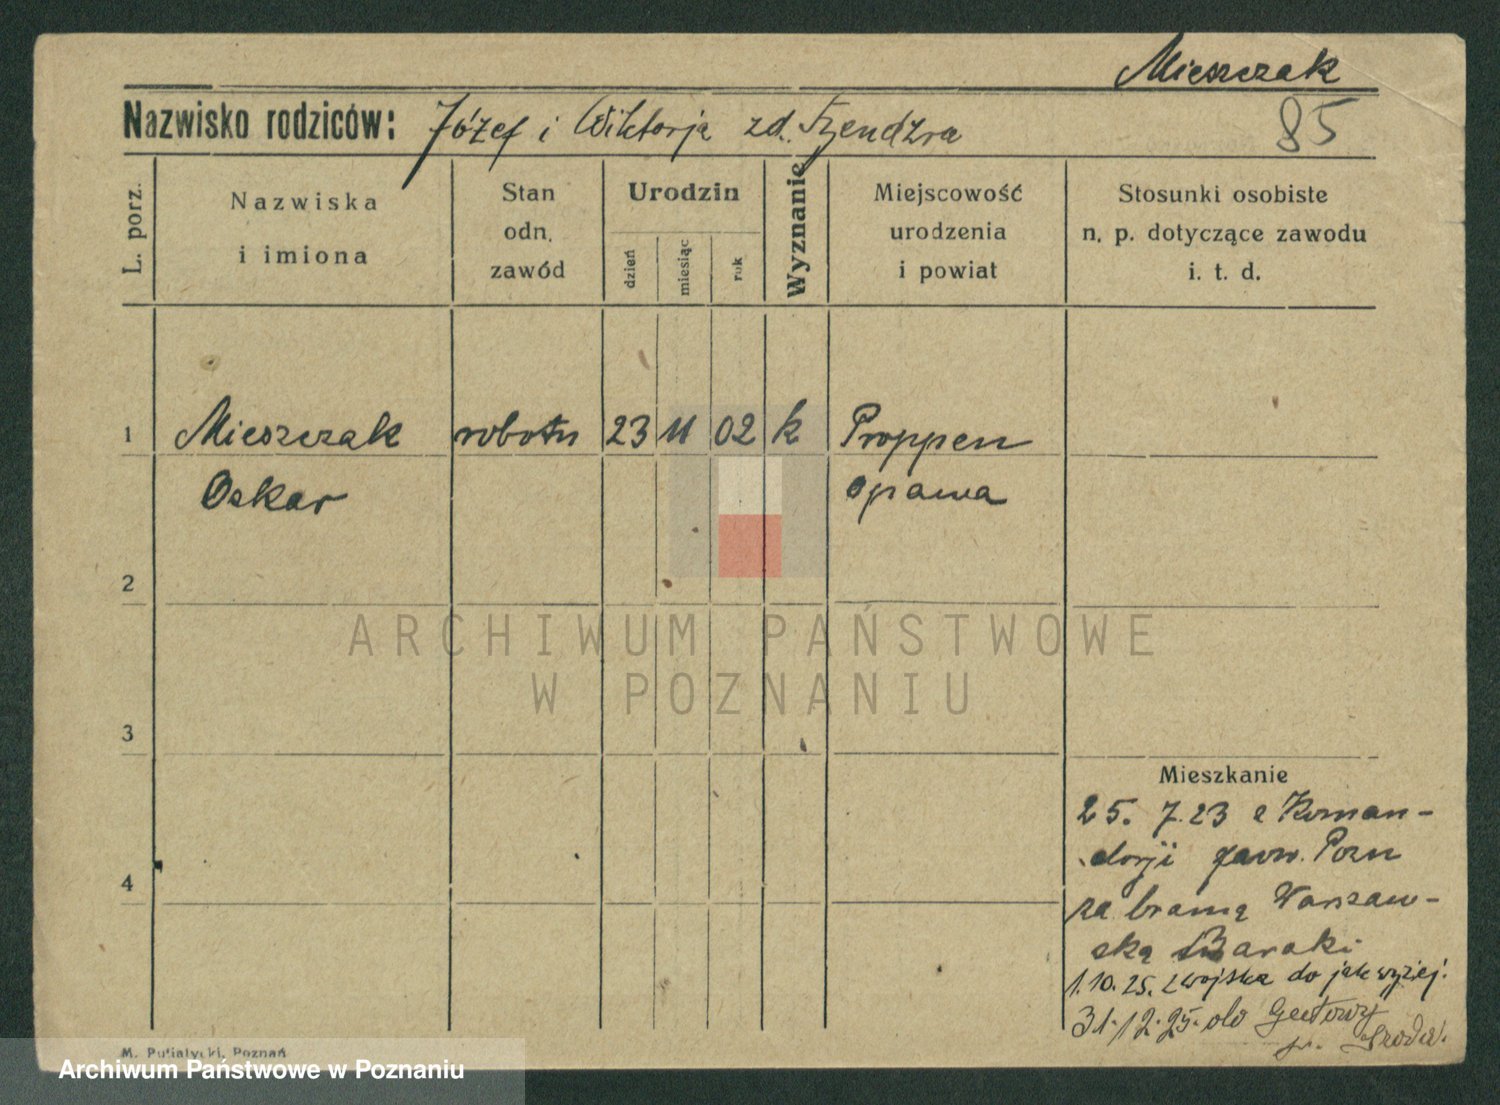 Mieszczak
Nazwisko rodziców: Józef i Wiktorja zd. Szendzra
85
L. porz.
Nazwiska
i imiona
Stan
odn.
zawód
Urodzin
dzień
miesiąc
rok
Wyznanie
Miejscowość
urodzenia
i powiat
Stosunki osobiste
n. p. dotyczące zawodu
i. t. d.
1 Mieszczak robotn 23 11 02 k Proppen
Oskar
2
ARCHIWUM PAŃSTWOWE
W POZNANIU
3
Mieszkanie
25. 7.23 z Koman-
dorji Pozn
za bramą Warszaw-
ską Baraki
1.10.25. z wojska do jak wyżej.
31.12.25. do Gułtowy
Środa.
4
M. Putiatycki, Poznań
Archiwum Państwowe w Poznaniu